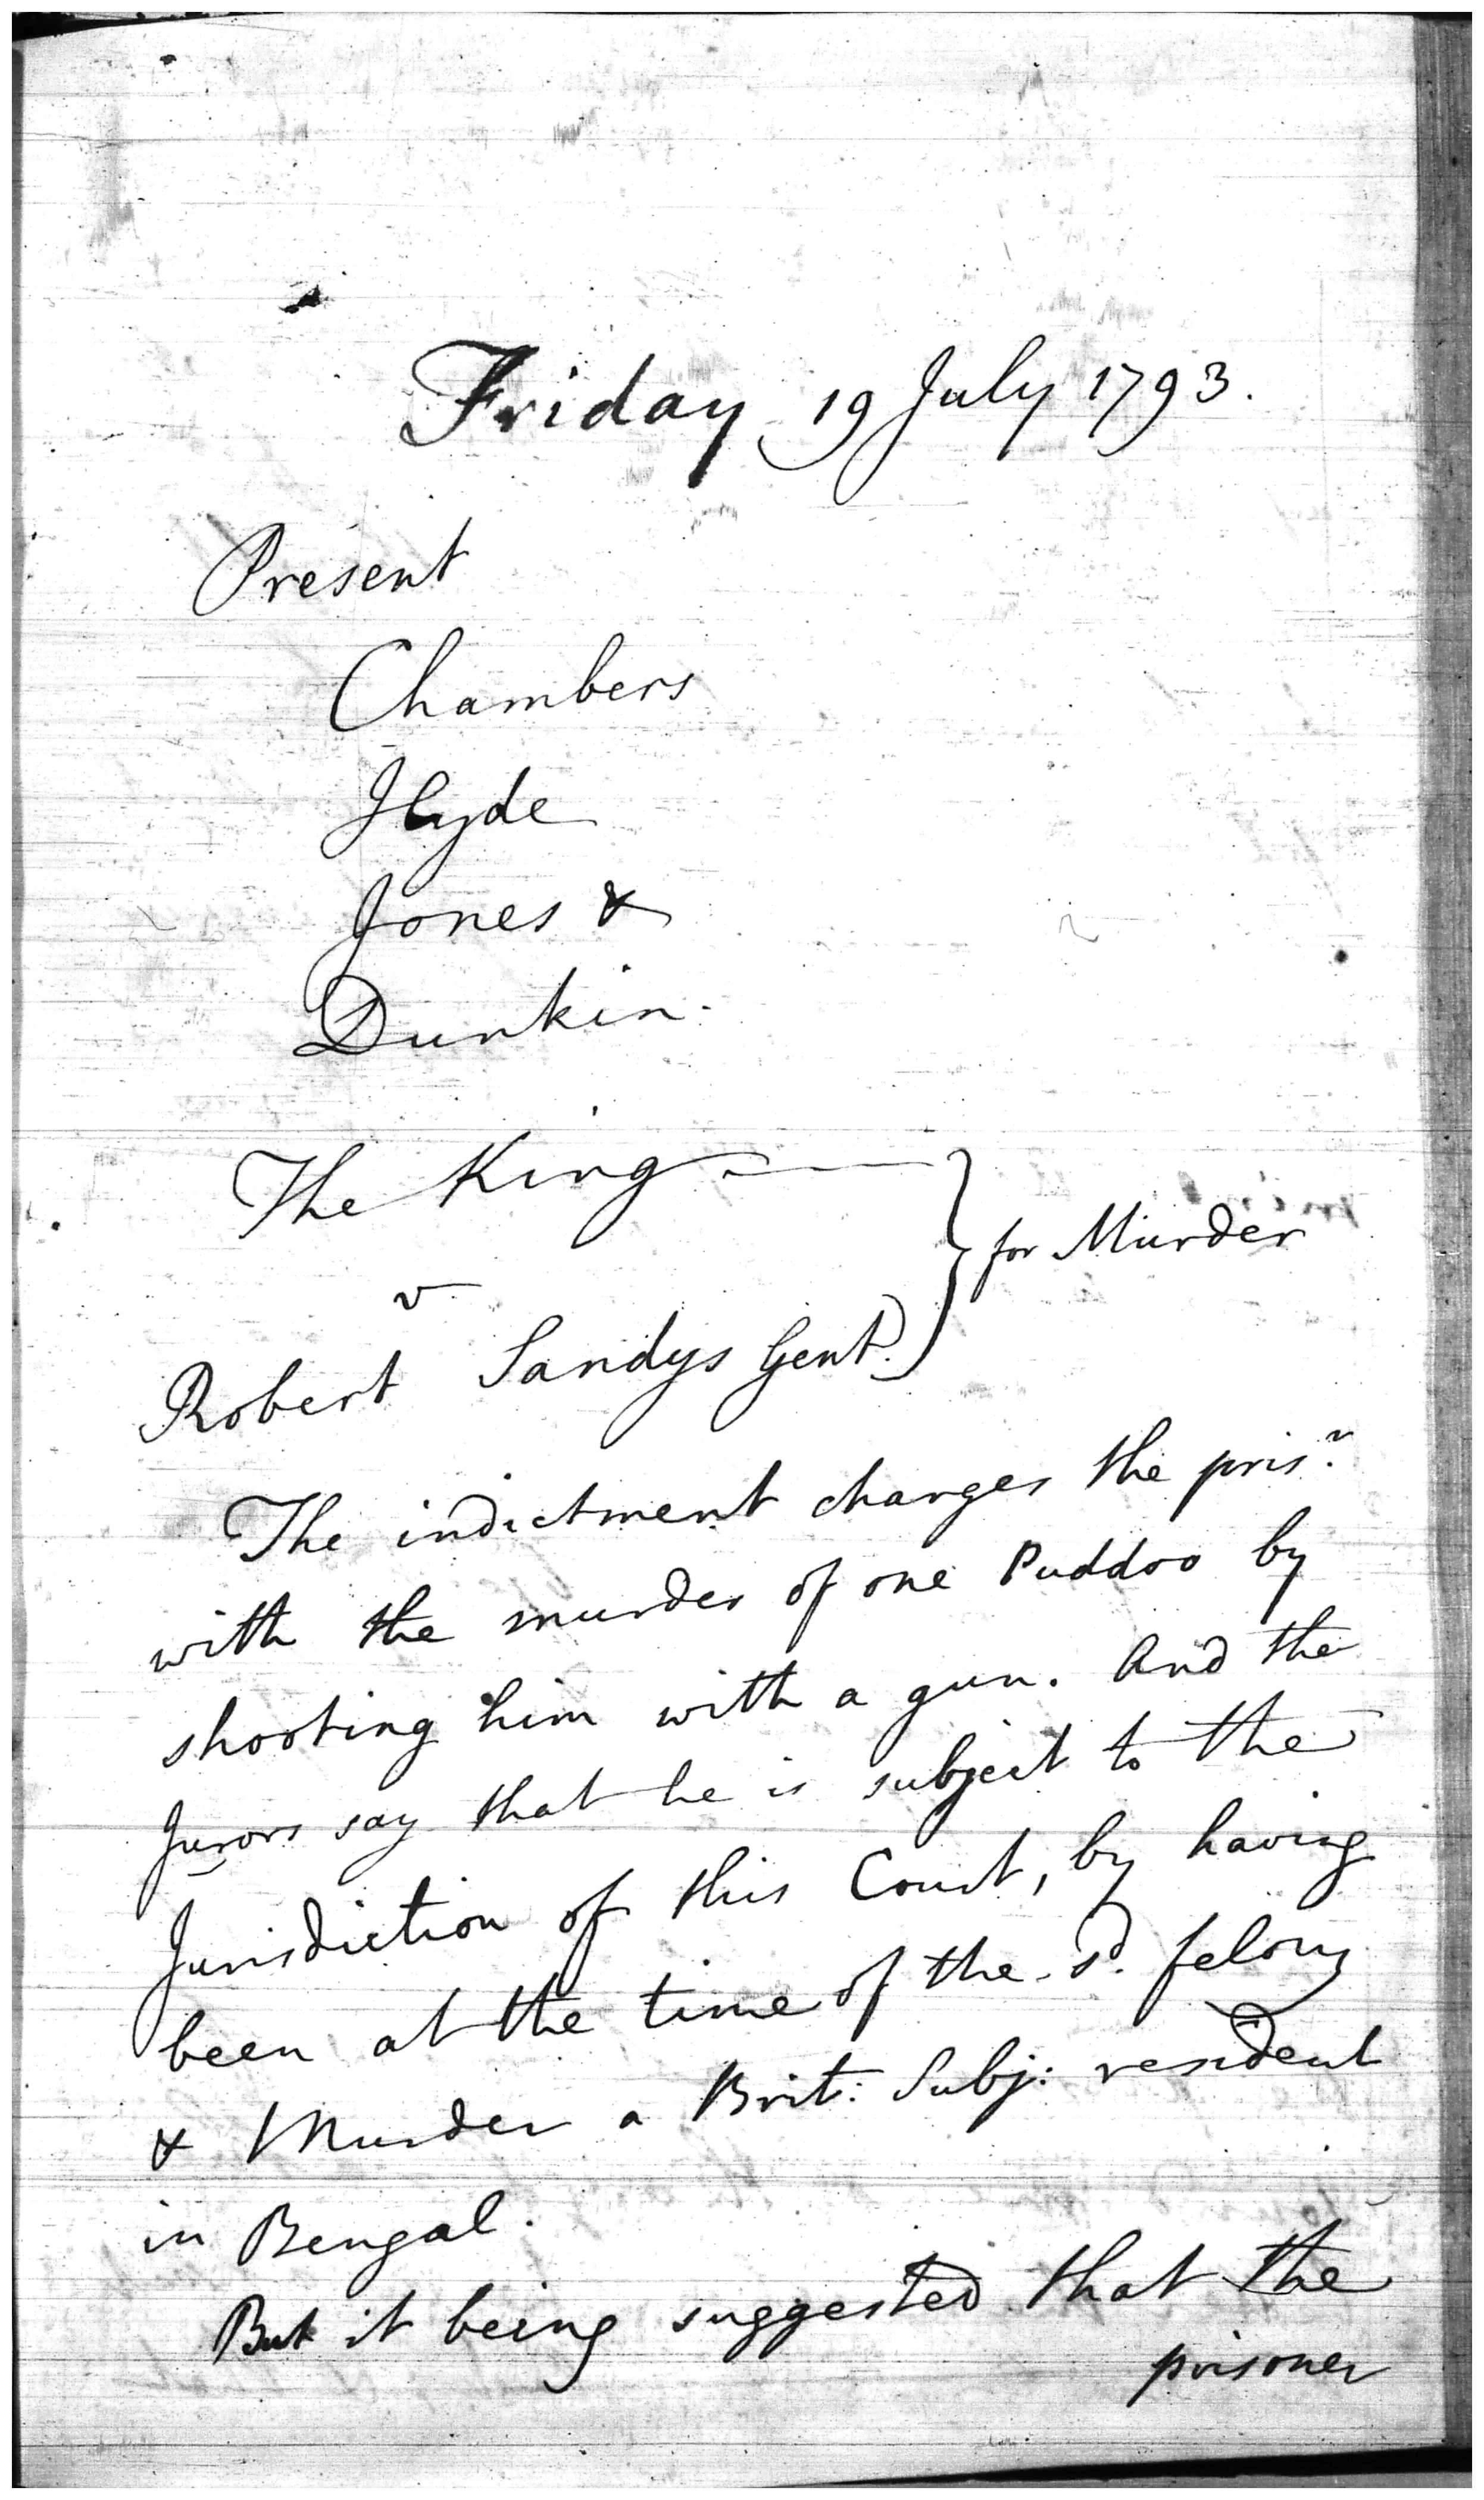 Friday 19 July 1793.
Present
Chambers
Hyde
Jones &
Dunkin.
The King
v
for Murder
Robert Sandys Gent.
The indictment charges the pris.r
with the murder of one Puddoo by
shooting him with a gun. And the
Jurors say that he is subject to the
Jurisdiction of this Court, by having
been at the time of the sd. felony
& Murder a Brit: Subj: resident
in Bengal.
But it being suggested that the
prisoner